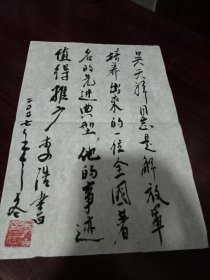 吴天祥同志是解放军
培养出来的一位全国著
名的先进典型,他的事迹
值得推广 李浩书
二〇〇七年 冬